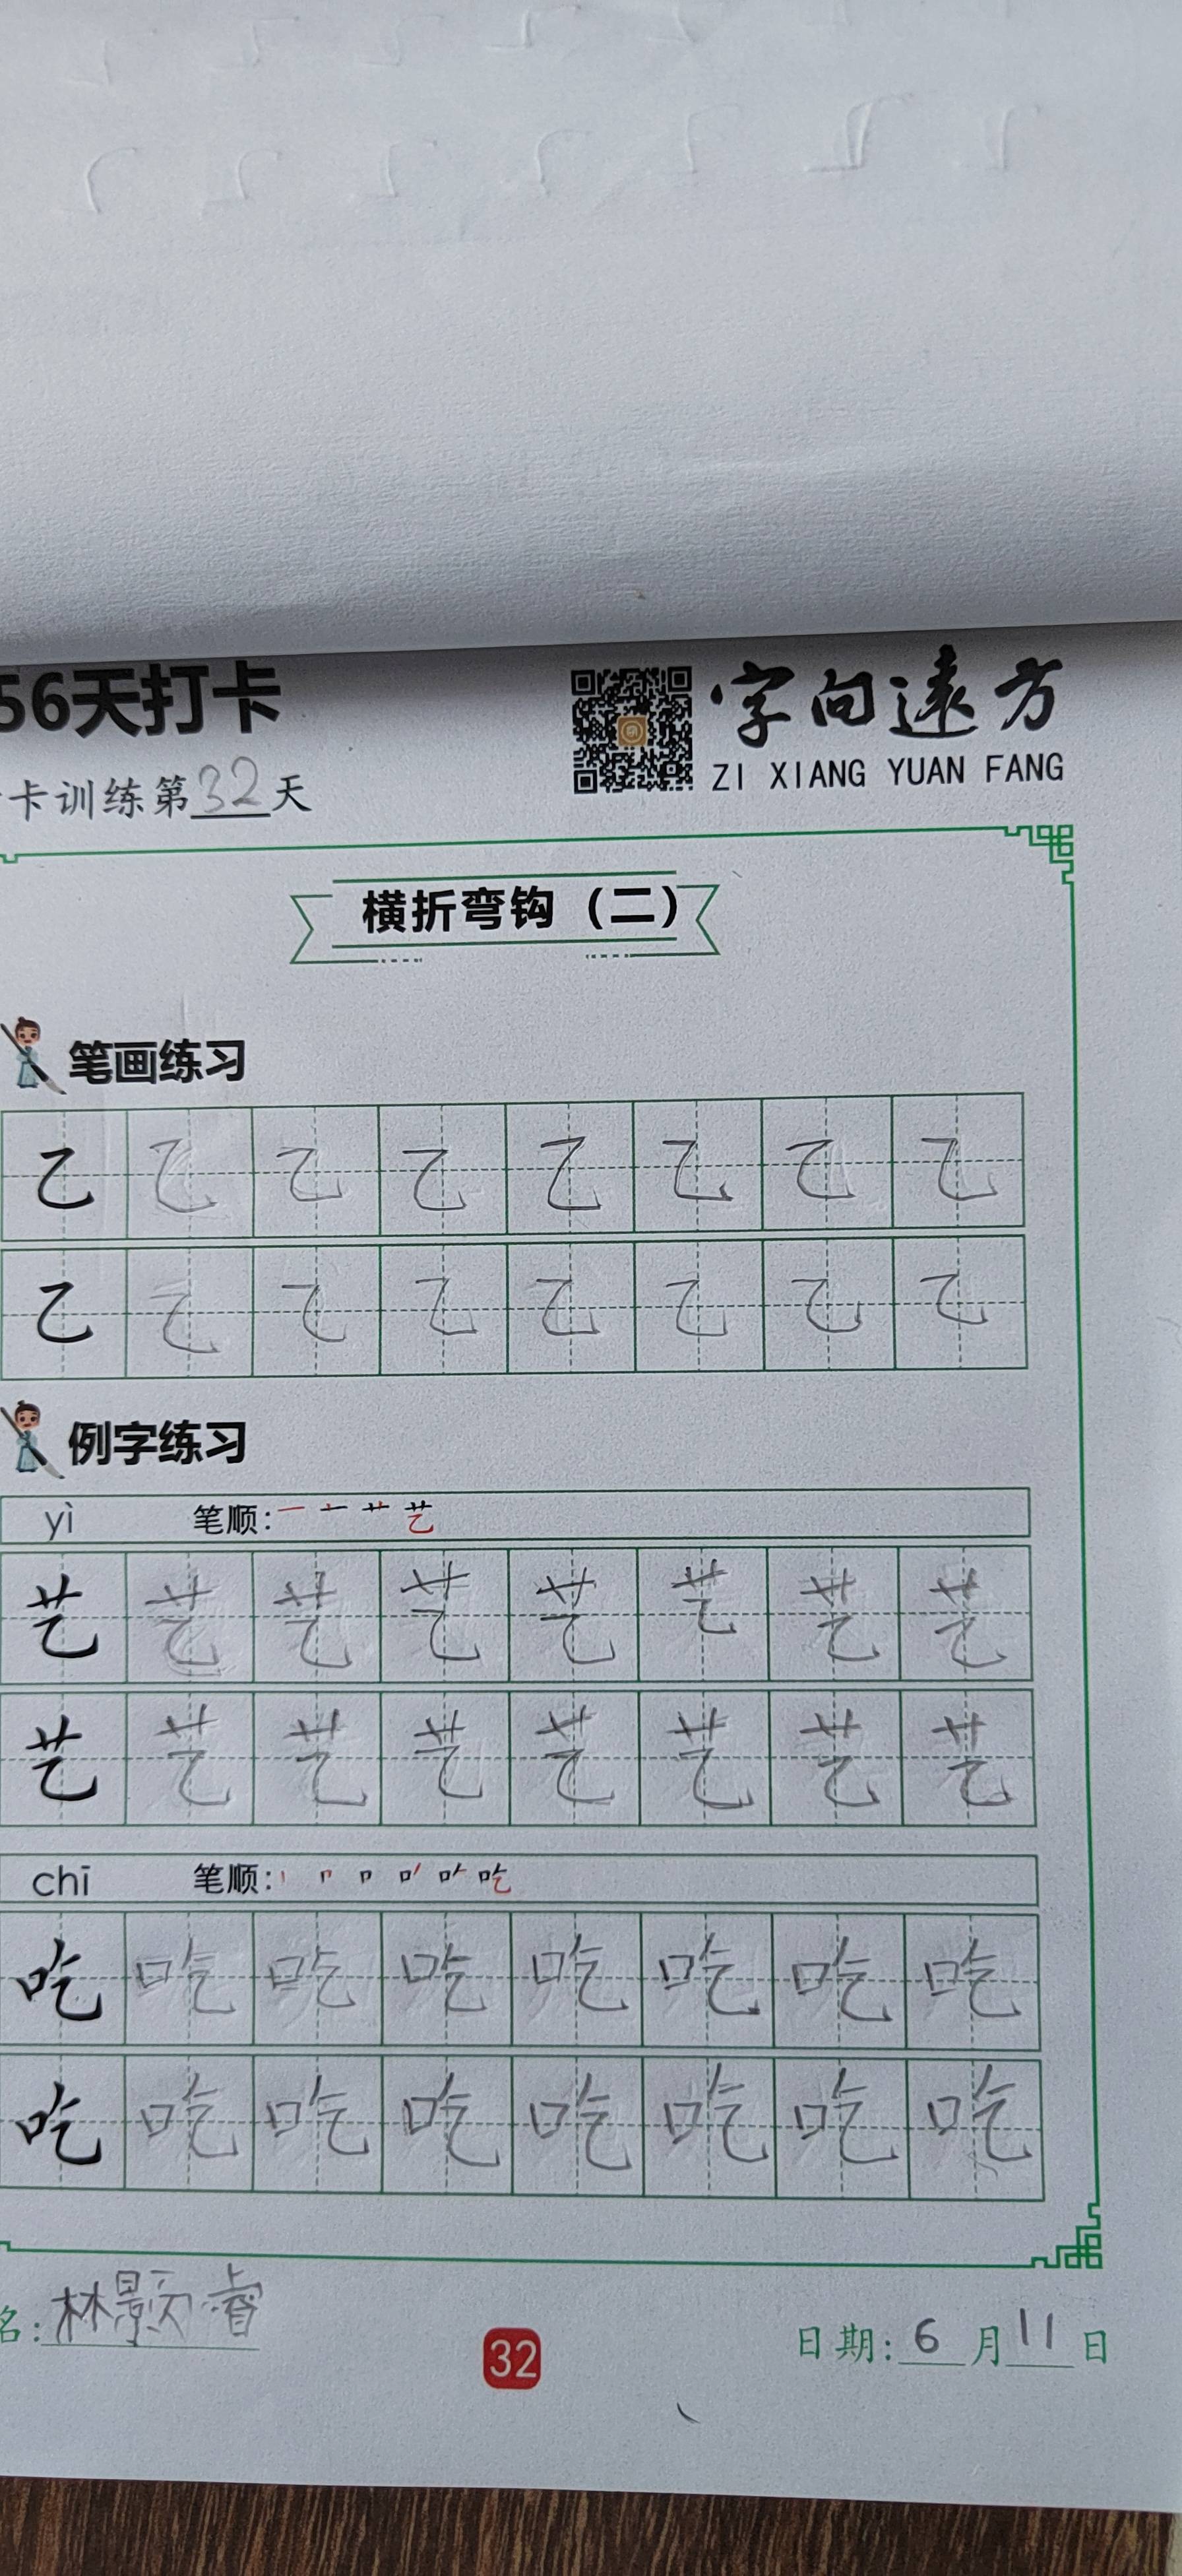 56天打卡
字向遠方
ZI XIANG YUAN FANG
卡训练第32天
横折弯钩（二）
笔画练习
乙 乙 乙 乙 乙 乙 乙 乙
乙 乙 乙 乙 乙 乙 乙 乙
例字练习
yì 笔顺: 艺
艺 艺 艺 艺 艺 艺 艺 艺
艺 艺 艺 艺 艺 艺 艺 艺
chī 笔顺: 吃
吃 吃 吃 吃 吃 吃 吃 吃
吃 吃 吃 吃 吃 吃 吃 吃
名: 林颢睿
32
日期: 6 月 11 日